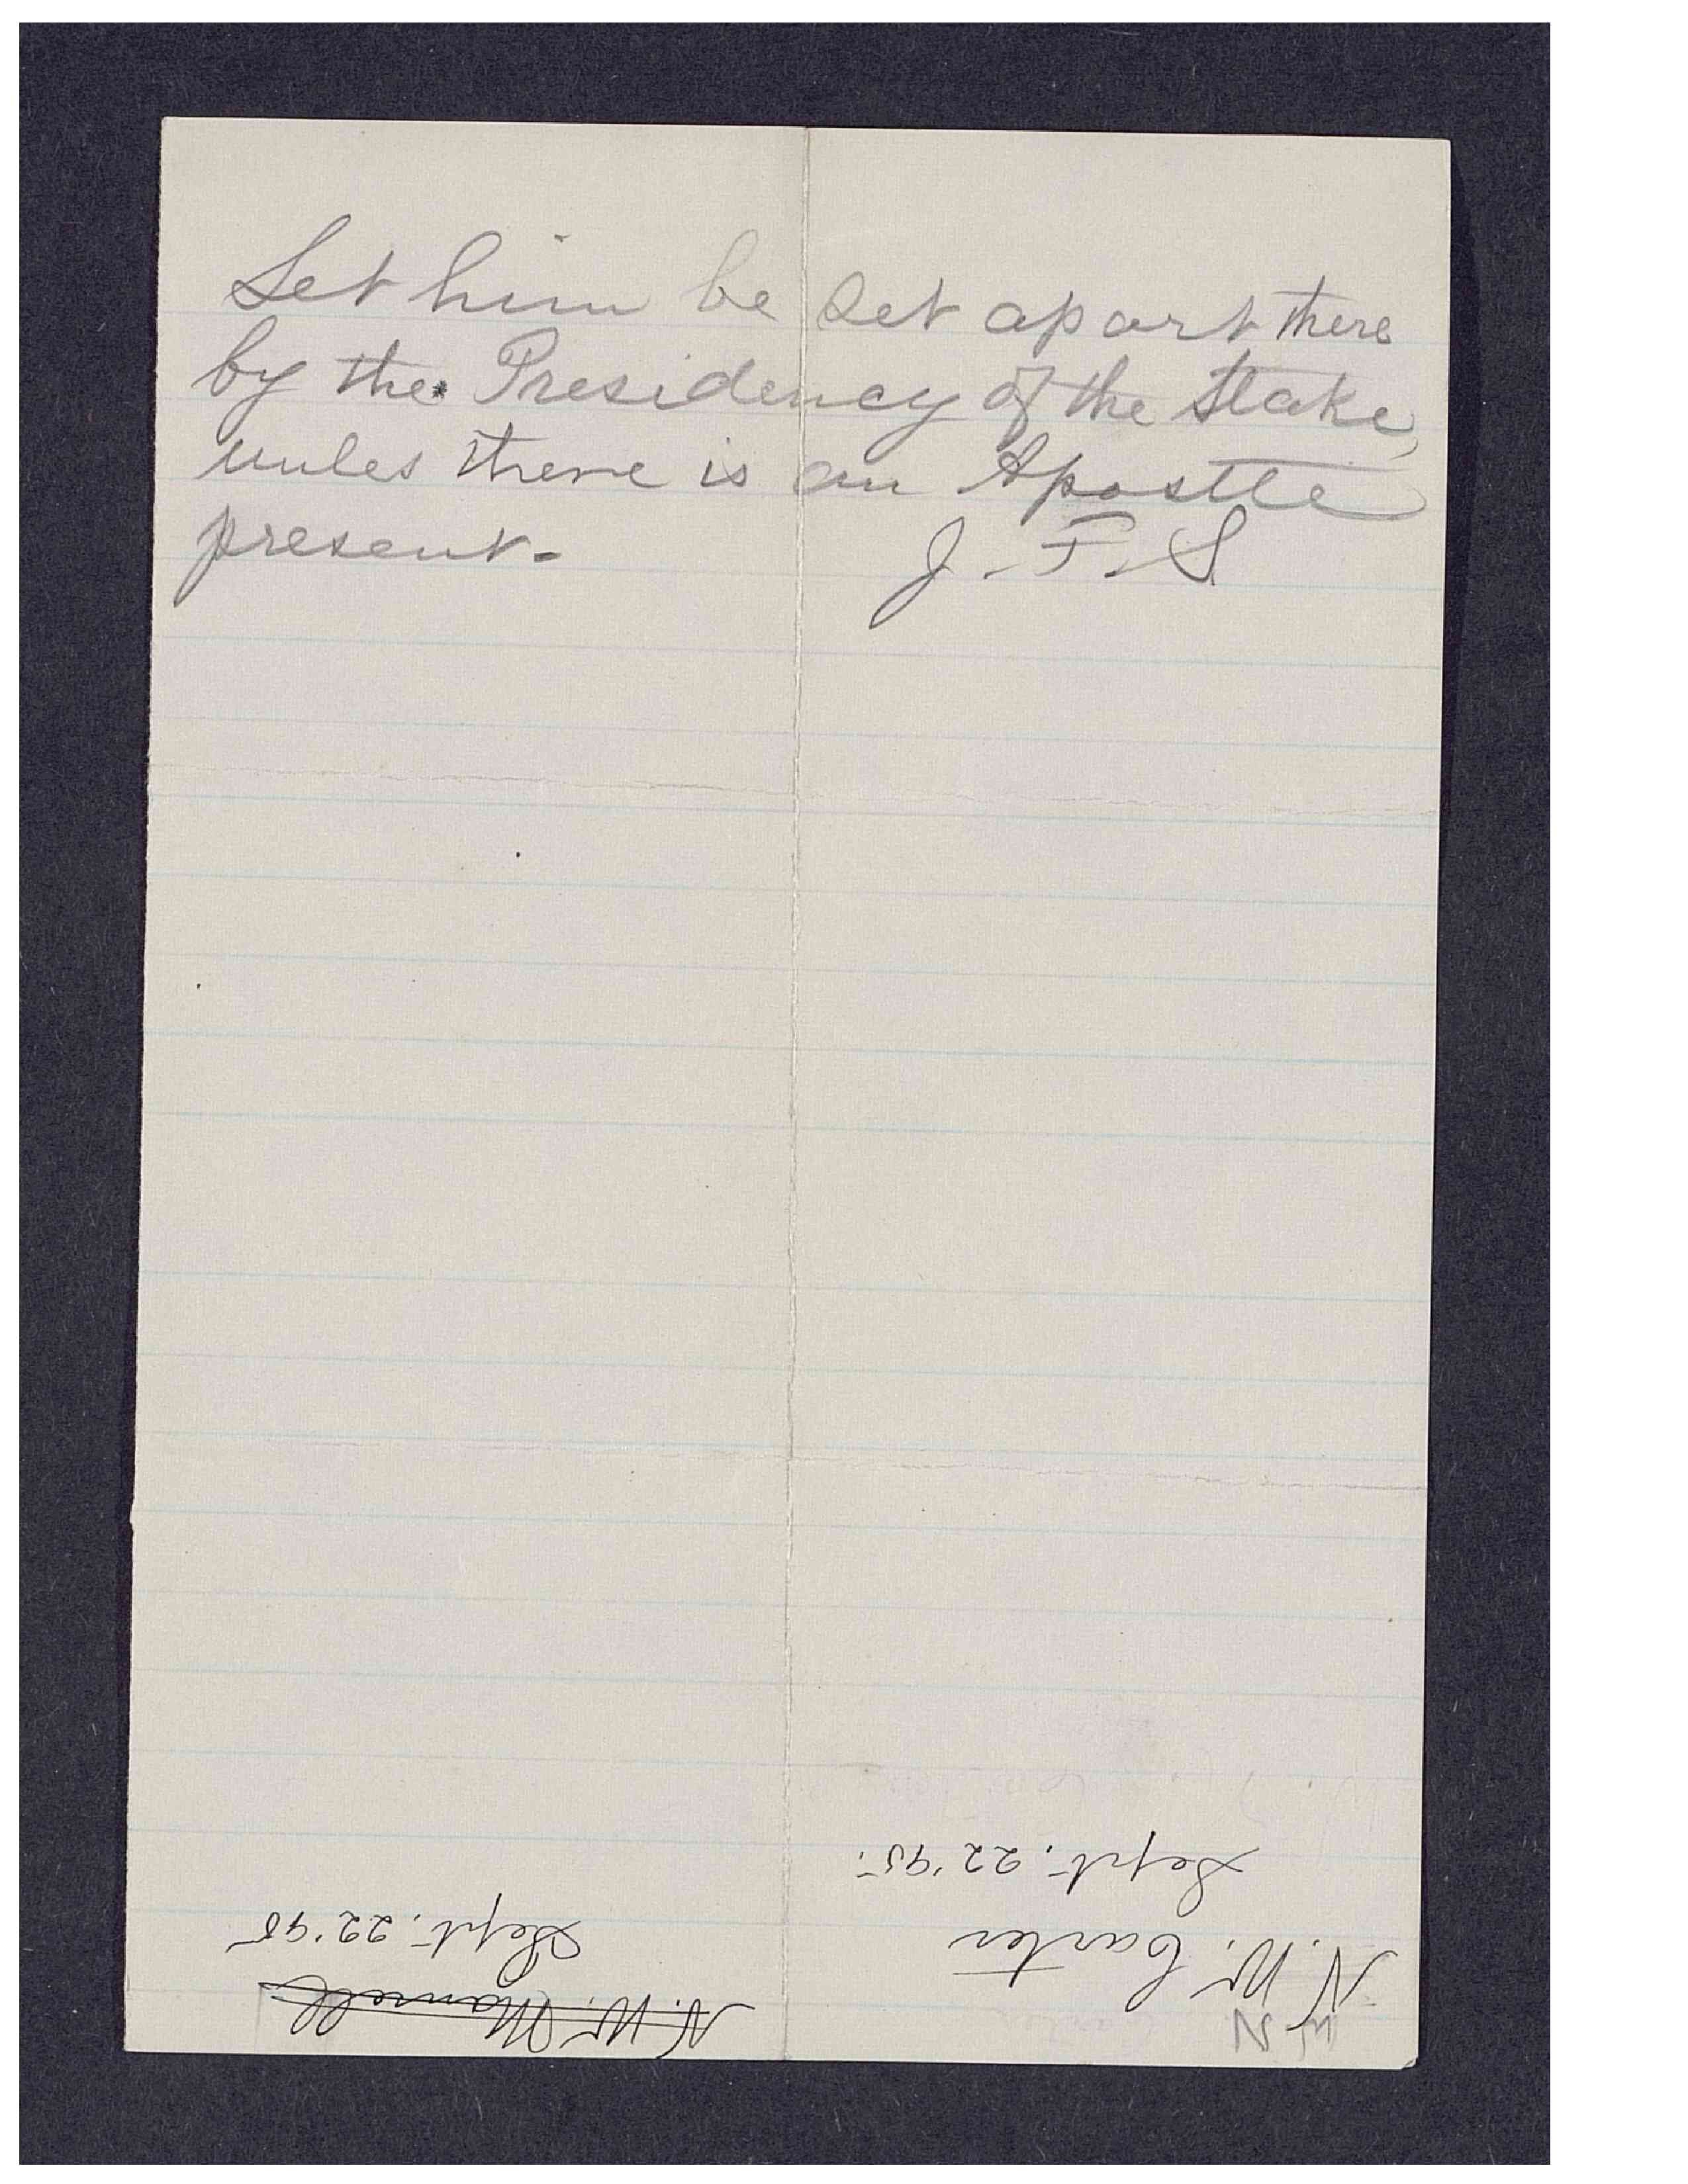 Let him be set apart there
by the Presidency of the Stake,
unles there is an Apostle
present. J. F. S
N. W. Carter
Sept. 22 '95.
Sept. 22 '95